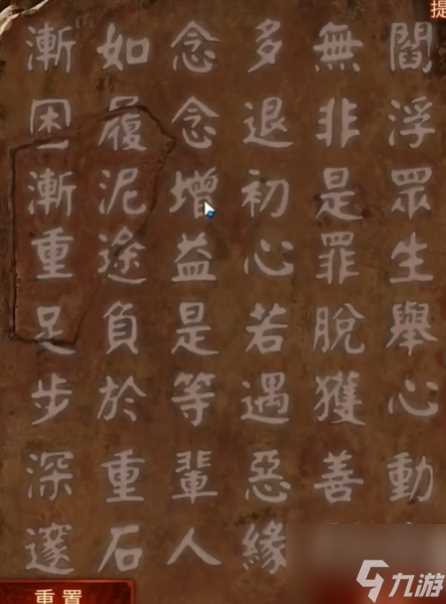 閻浮眾生舉心動
無非是罪脫獲善
多退初心若遇惡緣
念念增益是等輩人
如履泥途負於重石
漸困漸重足步深邃
提
重置
九游